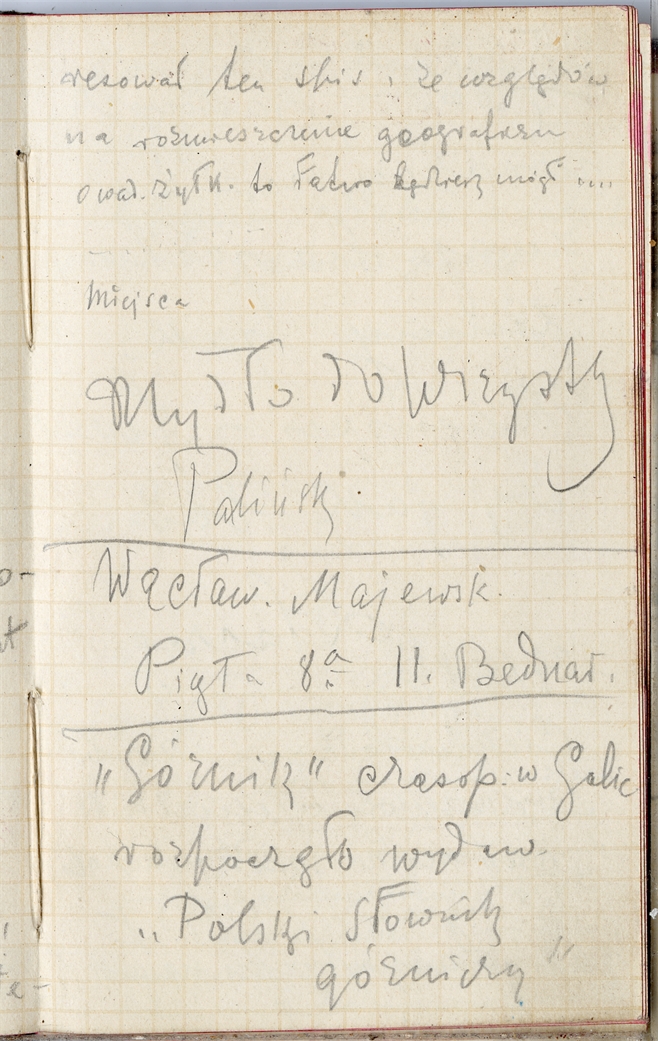 resował ten spis, ze względów
na rozmieszczenie geografczn
owad. żyłk. to łatwo będziesz mógł ....
Miejsca
Mydło do
Palińsk
Wacław. Majewsk.
Piękna 8a 11. Bednar.
"Górnik" czasop. w Galic
rozpoczęło wydaw.
"Polski Słownik
górniczy"
o-
at